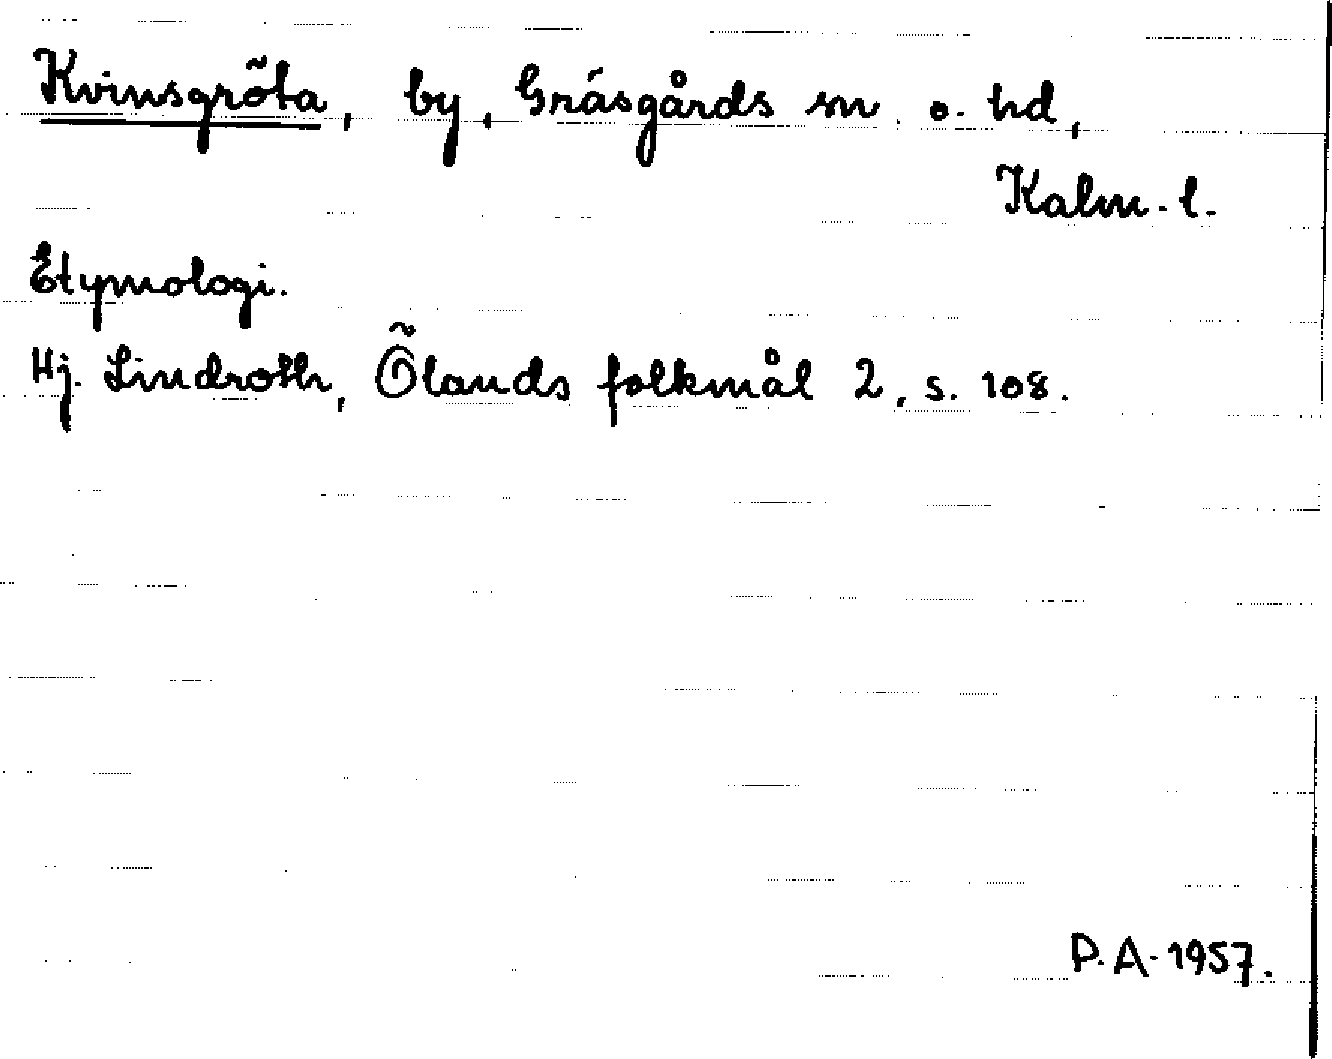 Kvinsgröta, by, Gräsgårds sn. o. hd,
Kalm. l.
Etymologi.
Hj. Lindroth, Ölands folkmål 2, s. 108.
P.A. 1957.